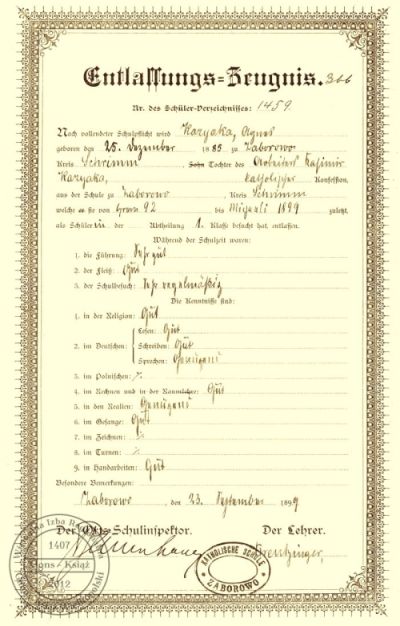 Entlassungs-Zeugnis. 366
Nr. des Schüler-Verzeichnisses: 1459
Nach vollendeter Schulpflicht wird Kazyaka, Agnes
geboren den 25. Dezember 1885 zu Zaborowo
Kreis Schrimm Sohn Tochter des Arbeiters Kasimir
Kazyaka, katholischer Konfession,
aus der Schule zu Zaborowo Kreis Schrimm
welche sie von 92 bis Michaeli 1899 zuletzt
als Schülerin der Abtheilung 1. Klasse besucht hat, entlassen.
Während der Schulzeit waren:
1. die Führung: Sehr gut
2. der Fleiß: Gut
3. der Schulbesuch: Sehr regelmäßig
Die Kenntnisse sind:
1. in der Religion: Gut
2. im Deutschen: Lesen: Gut
Schreiben: Gut
Sprechen: Genügend
3. im Polnischen: %
4. im Rechnen und in der Raumlehre: Gut
5. in den Realien: Genügend
6. im Gesange: Gut
7. im Zeichnen: %
8. im Turnen: %
9. in Handarbeiten: Gut
Besondere Bemerkungen:
Zaborowo, den 23. September 1899
Der Orts-Schulinspektor. Der Lehrer.
Kreutzinger,
KATHOLISCHE SCHULE
ZABOROWO
1407
Gons - Książ
2012